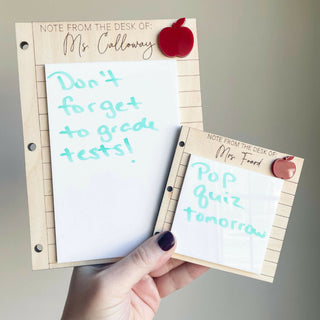 NOTE FROM THE DESK OF:
Ms. Calloway
Don't
forget
to grade
tests!
NOTE FROM THE DESK OF:
Mrs. Foord
Pop
quiz
tomorrow